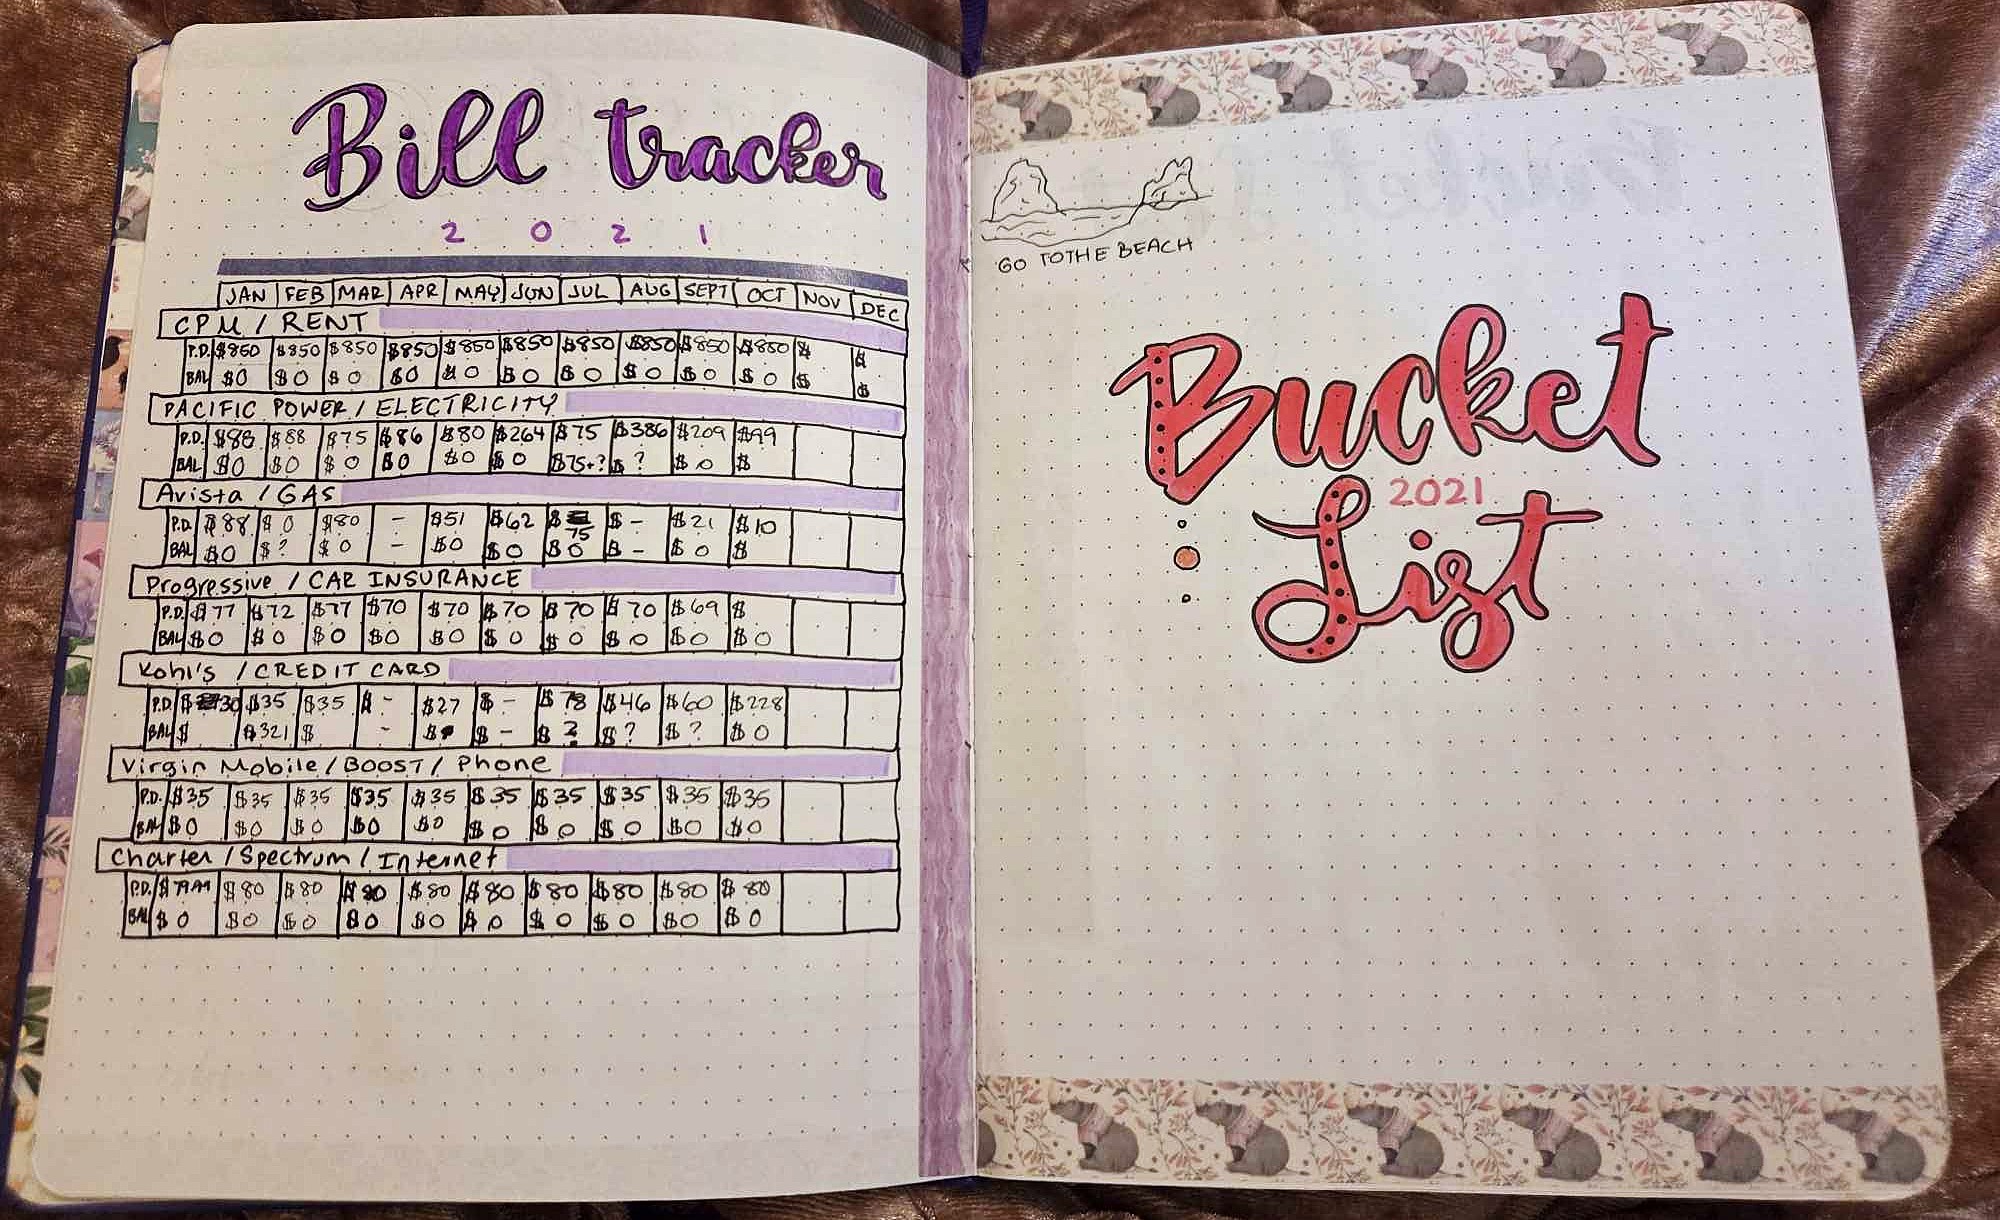 Bill tracker
2 0 2 1
JAN FEB MAR APR MAY JUN JUL AUG SEPT OCT NOV DEC
CPM / RENT
P.D. $850 $850 $850 $850 $850 $850 $850 $850 $850 $850 $ $
BAL $0 $0 $0 $0 $0 $0 $0 $0 $0 $0 $ $
PACIFIC POWER / ELECTRICITY
P.D. $88 $88 $75 $86 $80 $264 $75 $386 $209 $99
BAL $0 $0 $0 $0 $0 $0 $75+? $? $0 $
Avista / GAS
P.D. $88 $0 $80 - $51 $62 $ 75 $- $21 $10
BAL $0 $? $0 - $0 $0 $0 $- $0 $
Progressive / CAR INSURANCE
P.D. $77 $72 $77 $70 $70 $70 $70 $70 $69 $
BAL $0 $0 $0 $0 $0 $0 $0 $0 $0 $0
Kohl's / CREDIT CARD
P.D. $30 $35 $35 $- $27 $- $78 $46 $60 $228
BAL $ $321 $ - $ $- $? $? $? $0
Virgin Mobile / BOOST / Phone
P.D. $35 $35 $35 $35 $35 $35 $35 $35 $35 $35
BAL $0 $0 $0 $0 $0 $0 $0 $0 $0 $0
Charter / Spectrum / Internet
P.D. $79.99 $80 $80 $80 $80 $80 $80 $80 $80 $80
BAL $0 $0 $0 $0 $0 $0 $0 $0 $0 $0
GO TO THE BEACH
Bucket
2021
List